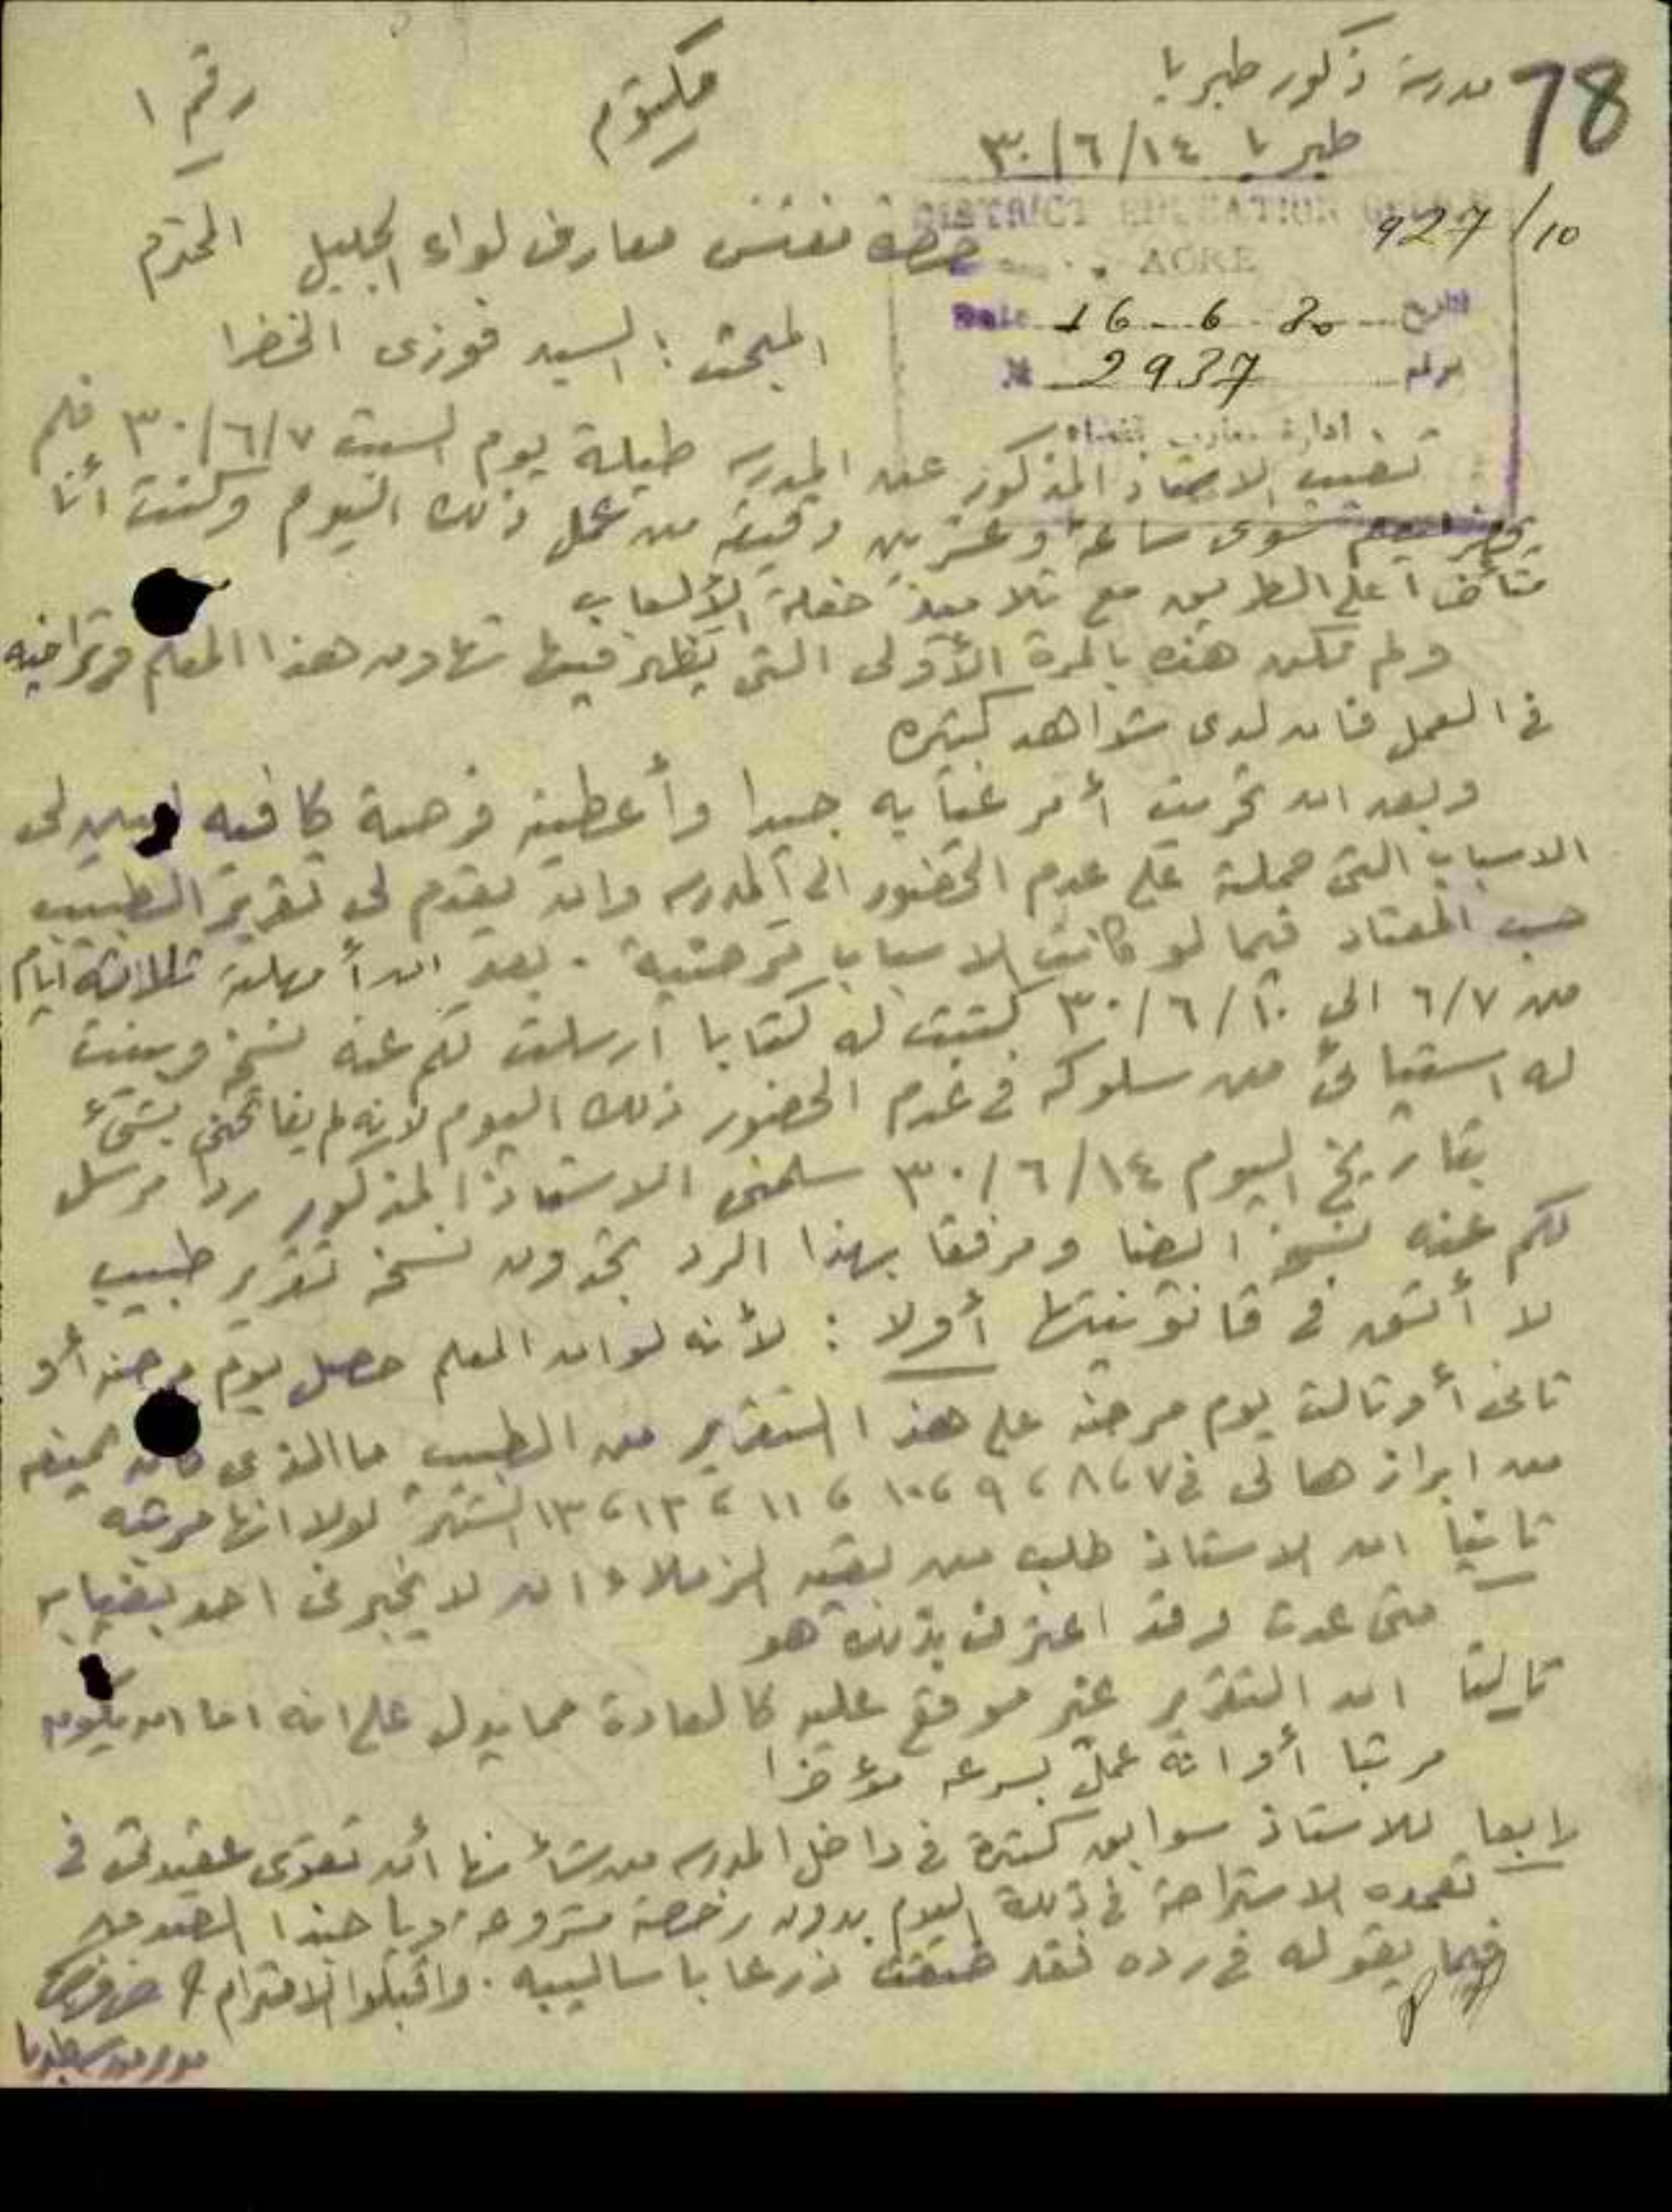 78
مدرسة ذكور طبريا
طبريا ١٤/٦/٣٠
مكتوم
رقم ١
927/10
DISTRICT EDUCATION
ACRE
Date 16-6-30 التاريخ
№ 2937
ادارة معارف
حضرة مفتش معارف لواء الجليل المحترم
المبحث : السيد فوزى الخضرا
تغيب الاستاذ المذكور عن المدرسه طيلة يوم السبت ٣٠/٦/٧ فلم
سوى ساعة وعشرين دقيقة من عمل ذلك اليوم وكنت أنا
متأخرا على الطريق مع تلاميذ حفلة الألعاب
ولم تكن هذه بالمرة الأولى التى يظهر فيها تهاون هذا المعلم وتراخيه
فى العمل فان لدى شواهد كثيره
وبعد ان تحريت أمر غيابه جيدا وأعطيته فرصة كافيه ليبين لى
الاسباب التى حملته على عدم الحضور الى المدرسه وان يقدم لى تقرير الطبيب
حسب المعتاد فيما لو كانت الاسباب مرضية . بعد ان أمهلته ثلاثة أيام
من ٦/٧ الى ٣٠/٦/١٠ كتبت له كتابا ارسلت لكم عنه نسخه وبينت
له استيائى من سلوكه فى عدم الحضور ذلك اليوم لانه لم يفاتحنى بشىء
بتاريخ اليوم ٣٠/٦/١٤ سلمنى الاستاذ المذكور ردا مرسل
لكم عنه نسخه ايضا ومرفقا بهذا الرد تجدون نسخة تقرير طبيب
لا أثق فى قانونيتها أولا : لأنه لو ان المعلم حصل يوم مرضه أو
ثانى أو ثالث يوم مرضه على هذا التقرير من الطبيب ما الذى كان يمنعه
من ابرازها لى فى ٧، ٨، ٩، ١٠، ١١، ١٢، ١٣ الشهر لولا انها مرتبه
ثانيا ان الاستاذ طلب من بقية الزملاء ان لا يخبرنى احد بغيابه
متى عدت وقد اعترف بذلك هو
ثالثا ان التقرير غير موقع عليه كالعادة مما يدل على انه اما ان يكون
مرتبا أو انه عمل بسرعه مؤخرا
رابعا للاستاذ سوابق كثيرة فى داخل المدرسه من شأنها أن تقوى عقيدتى فى
تعمده الاستراحة فى ذلك اليوم بدون رخصة مشروعة. ويا حبذا الصدق
فيما يقوله فى رده فقد ضقت ذرعا باساليبه . واقبلوا الاحترام
مدير مدرسة طبريا